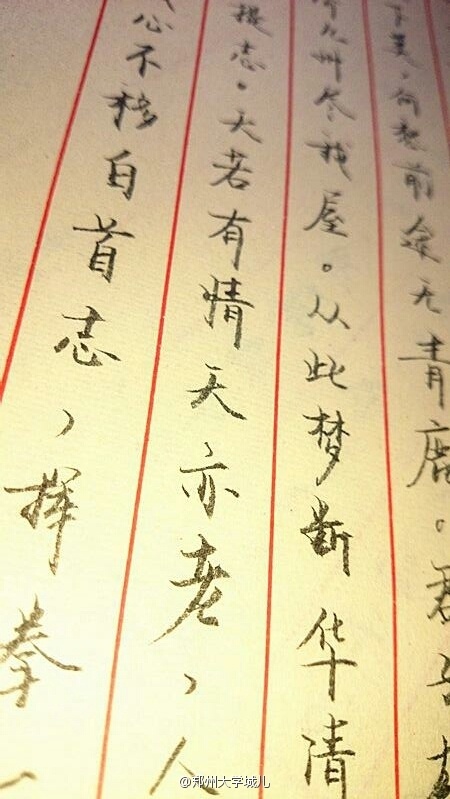 下美，何愁前途无青鹿。君
九州尽我屋。从此梦断华清
提志。天若有情天亦老，人
心不移白首志，挥拳一
@郑州大学城儿